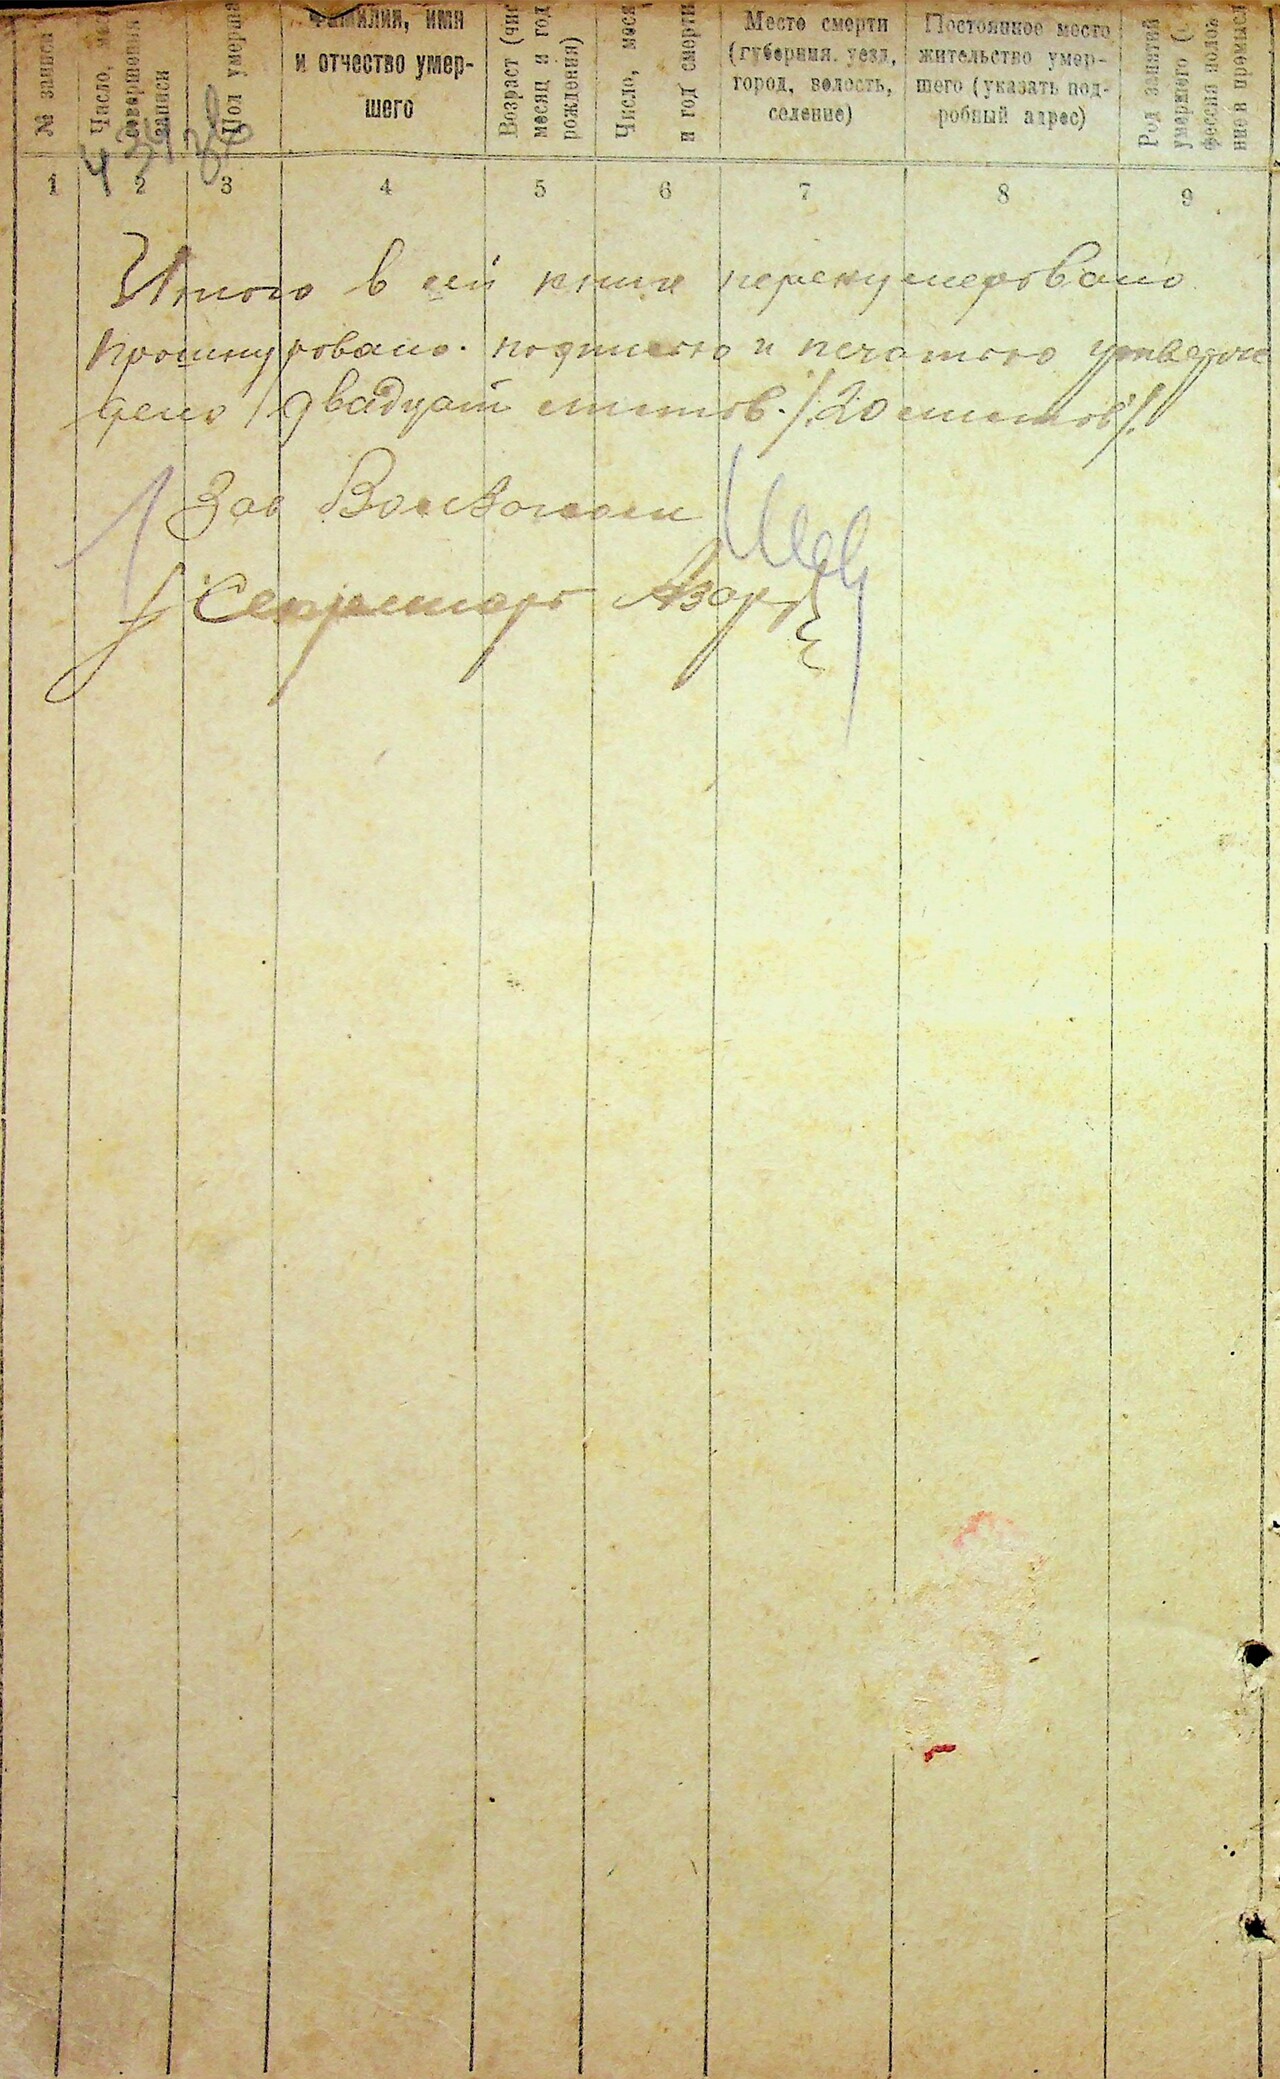 № записи
Число, мес
совершения
записи
Пол умерша
Фамилия, имя
и отчество умер-
шего
Возраст (чис
месяц и год
рождения)
Число, меся
и год смерти
Место смерти
(губерния. уезд,
город, волость,
селение)
Постоянное место
жительство умер-
шего (указать под-
робный адрес)
Род занятий
умершего (
фессия полож
ние в промысл
1 2 3 4 5 6 7 8 9
Итого в сей книге перенумеровано
прошнуровано. подписью и печатью утвержде
дено / двадцат листов. /20 листов/.
Зав
Секретарь